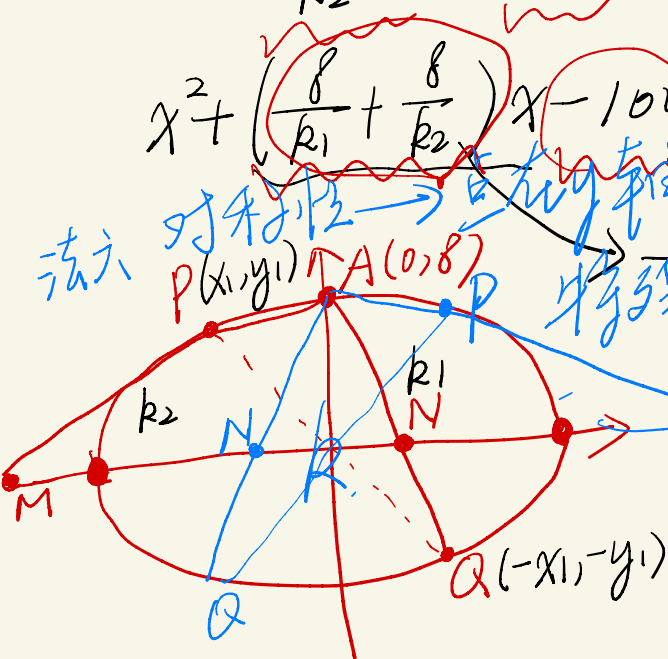 x² + (8/k₁ + 8/k₂) x - 10
对称性 → 点在y轴
法六
P(x₁,y₁) A(0,8) P 特殊
k₂ k₁
N N
M
Q(-x₁,-y₁)
Q